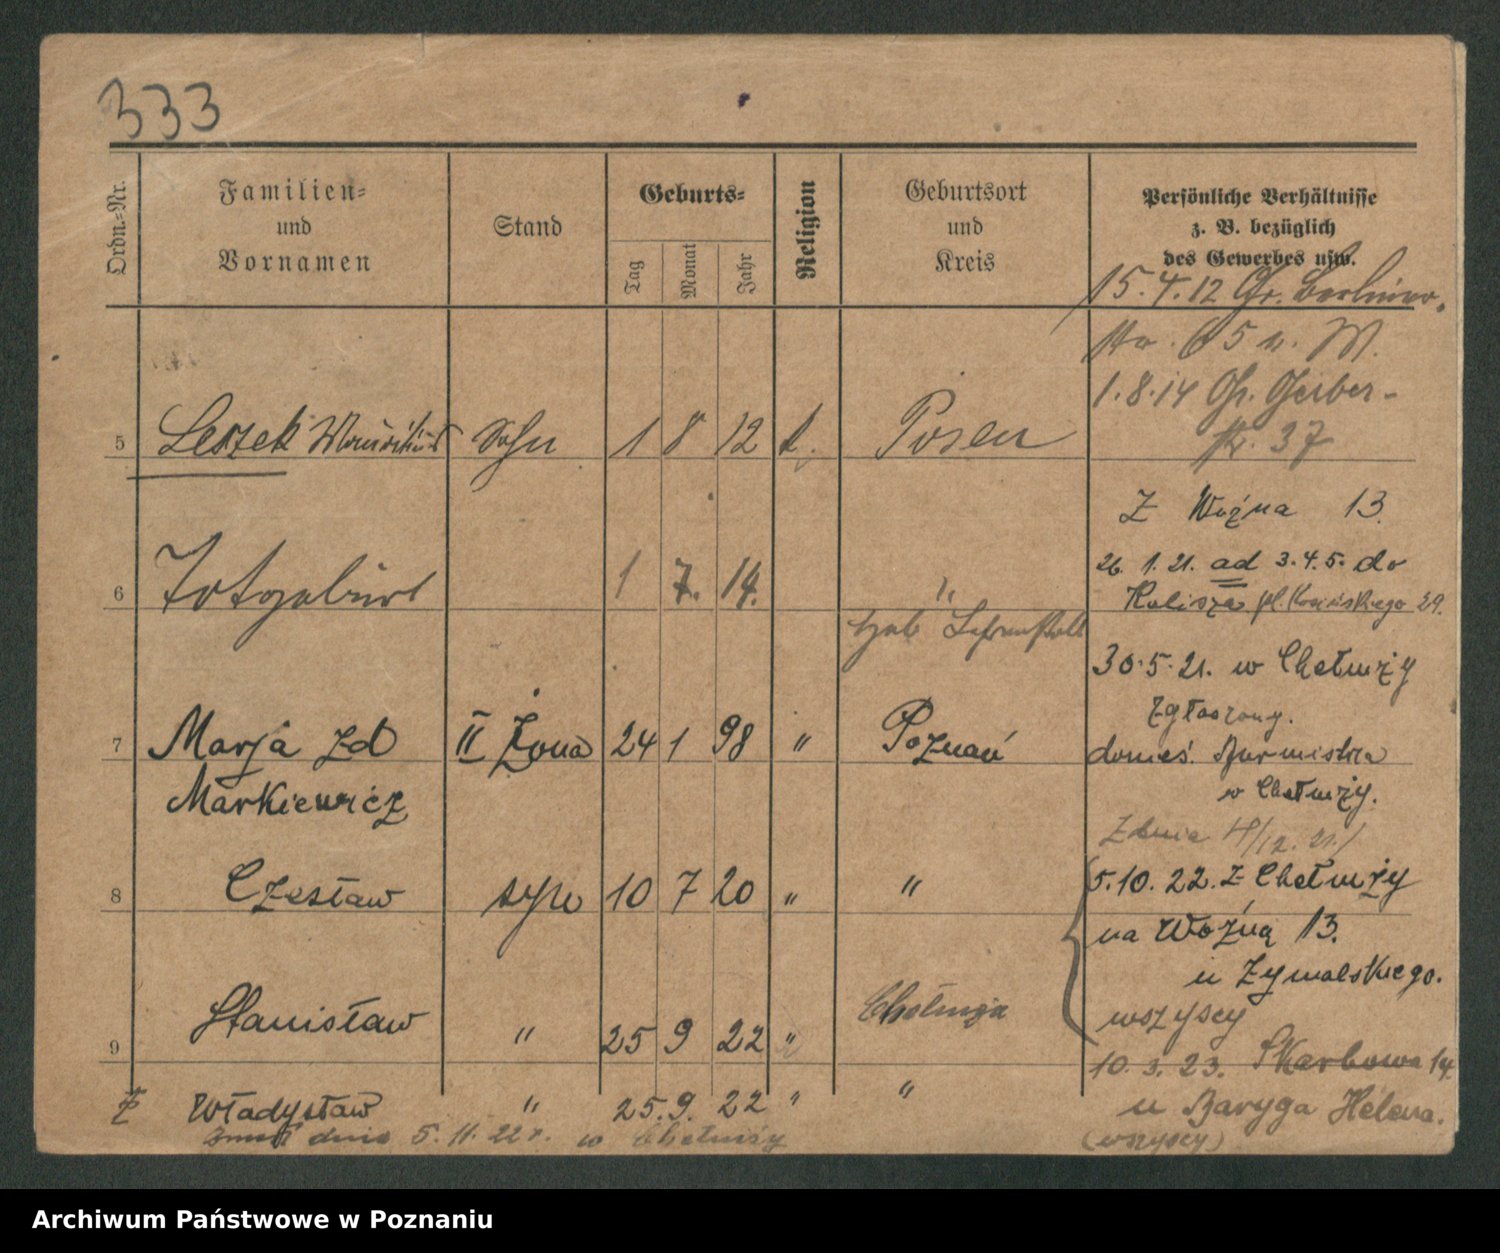 333
Ordn.=Nr.
Familien=
und
Vornamen
Stand
Geburts=
Tag
Monat
Jahr
Religion
Geburtsort
und
Kreis
Persönliche Verhältnisse
z. B. bezüglich
des Gewerbes usw.
15.4.12 Gr. Berliner-
str. 65 n. M.
1.8.14 Gr. Gerber-
str. 37
5 Leszek Sohn 1 8 12 k. Posen
Z Woźna 13
6 Totgeburt 1 7. 14. "
26. 1. 21. ad 3. 4. 5. do
Kalisza pl. 29.
30.5.21. w Chełmży
zgłoszony.
7 Marja zd II Żona 24 1 98 " Poznań
Markiewicz
donieś. Burmistrza
w Chełmży.
Z dnia /12. 21.
8 Czesław syn 10 7 20 " "
5.10. 22. Z Chełmży
na Woźną 13.
u Zymalskiego.
wszyscy
9 Stanisław " 25 9 22 " Chełmża
10. 3. 23. Skarbowa 14
Władysław " 25. 9. 22 " "
u Baryga Helena.
zmarł dnia 5. 11. 22 r. w Chełmży
(wszyscy)
Archiwum Państwowe w Poznaniu